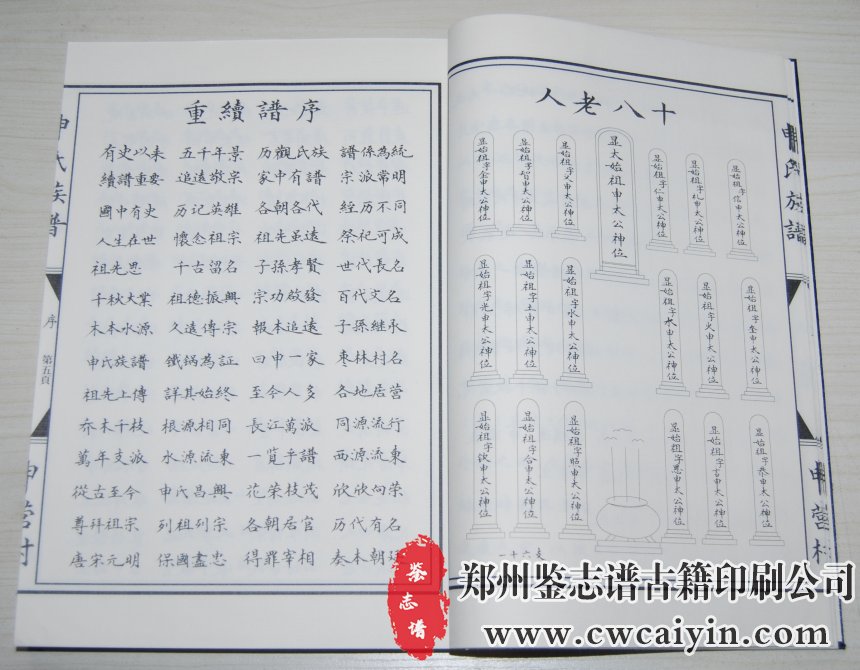 重續譜序
有史以來 五千年景 历觀氏族 譜係為統
續譜重要 追遠敬宗 家中有譜 宗派常明
國中有史 历记英雄 各朝各代 經历不同
人生在世 懷念祖宗 祖先虽遠 祭祀可成
祖先思 千古留名 子孫孝賢 世代長名
千秋大業 祖德振興 宗功啟發 百代文名
木本水源 久遠傳宗 報本追遠 子孫継承
申氏族譜 鐵锅為証 曰申一家 枣林村名
祖先上傳 詳其始終 至今人多 各地居营
乔木千枝 根源相同 長江萬派 同源流行
萬年支派 水源流東 一覧乎譜 西源流東
從古至今 申氏昌興 花荣枝茂 欣欣向荣
尊拜祖宗 列祖列宗 各朝居官 历代有名
唐宋元明 保國盡忠 得罪宰相 奏本朝
申氏族譜
序
第五頁
申营村
十八老人
显始祖字信申太公神位
显始祖字礼申太公神位
显始祖字仁申太公神位
显太始祖申太公神位
显始祖字义申太公神位
显始祖字智申太公神位
显始祖字金申太公神位
显始祖字奎申太公神位
显始祖字火申太公神位
显始祖字水申太公神位
显始祖字水申太公神位
显始祖字土申太公神位
显始祖字光申太公神位
显始祖字恭申太公神位
显始祖字言申太公神位
显始祖字恩申太公神位
显始祖字照申太公神位
显始祖字合申太公神位
显始祖字钦申太公神位
一十六支
申氏族譜
申营村
鉴志谱
郑州鉴志谱古籍印刷公司
www.cwcaiyin.com